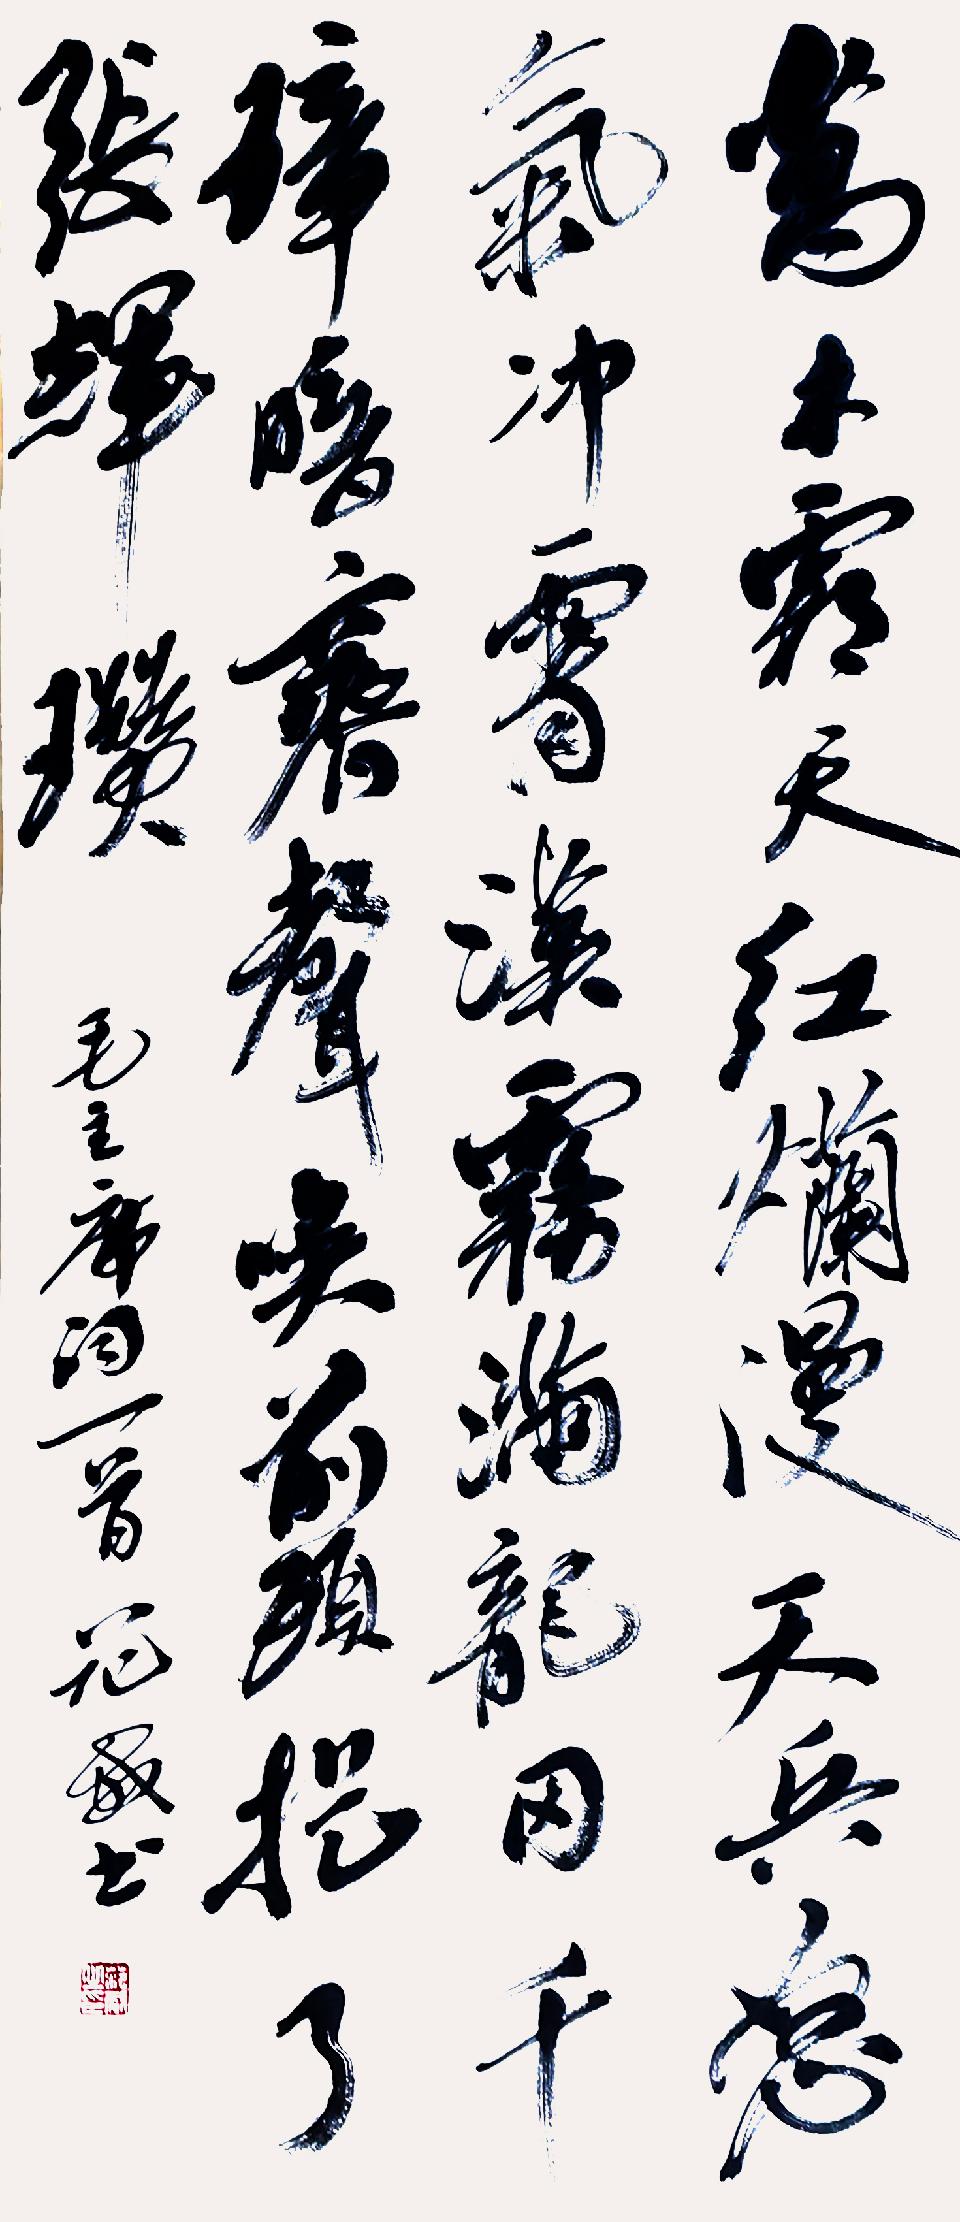 萬木霜天红爛漫天兵怒
氣冲霄漢霧滿龍冈千
嶂暗齊聲唤前頭捉了
張輝瓚
毛主席词一首 书